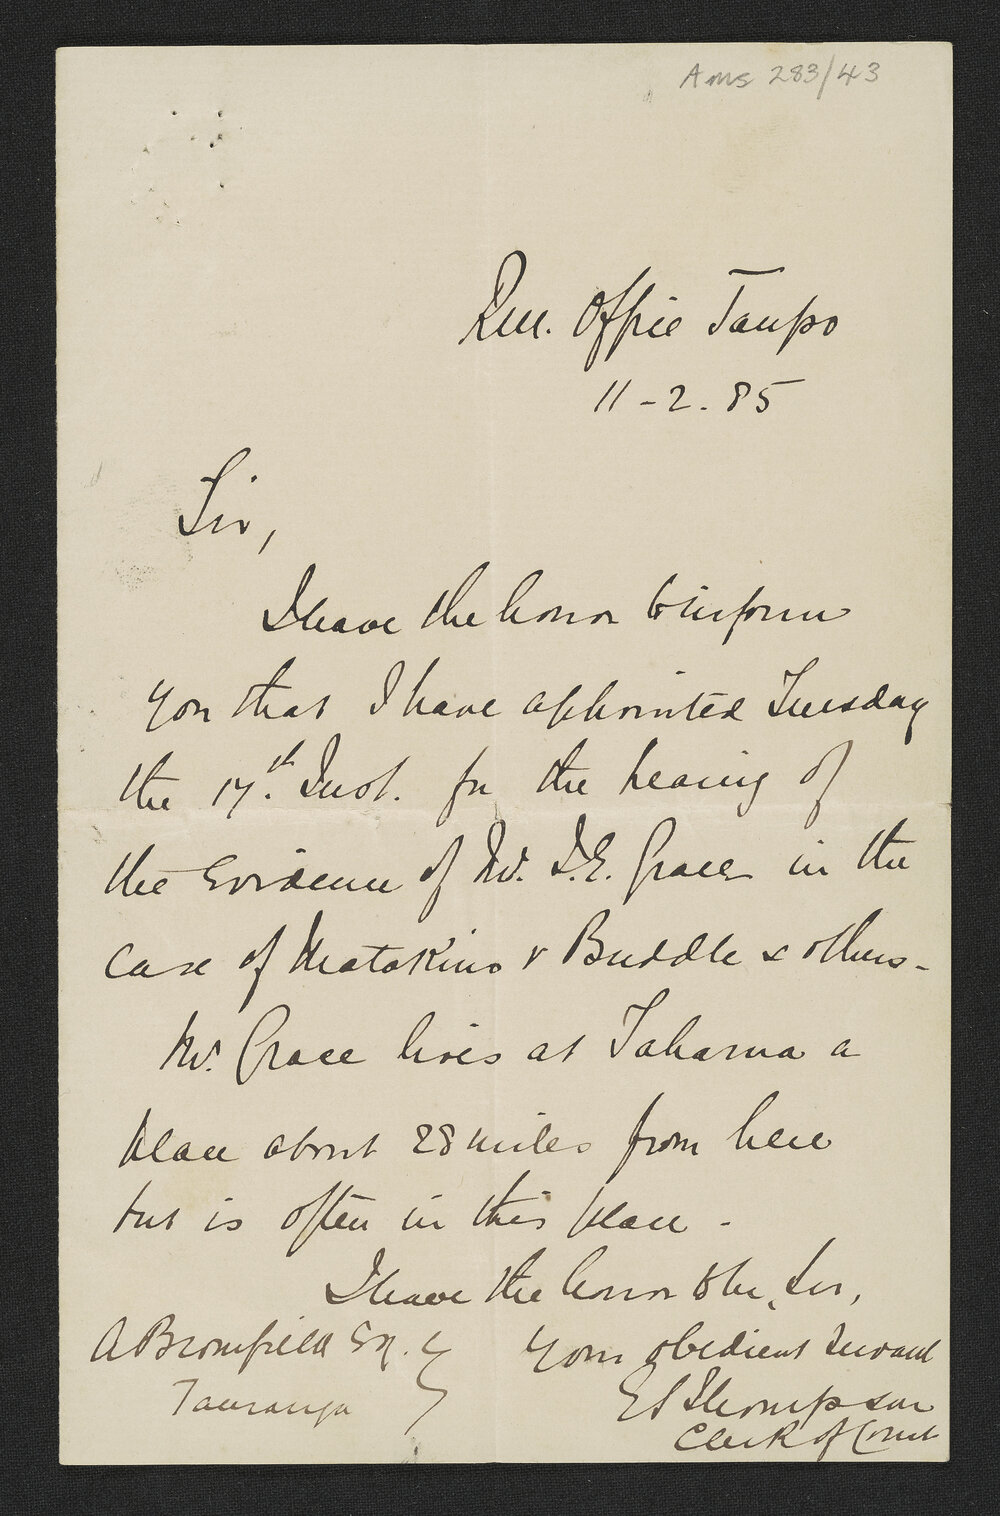 Ams 283/43
R.M. Office Taupo
11-2.85
Sir,
I have the honor to inform
you that I have appointed Tuesday
the 17th. Inst. for the hearing of
the Evidence of Mr. L.E. Grace in the
case of Matakino v Buddle & others -
Mr. Grace lives at Tokaanu a
place about 28 miles from here
but is often in this place -
I have the honor to be, Sir,
Your obedient servant
Thompson
Clerk of Court
A Bromfield Esq.
Tauranga